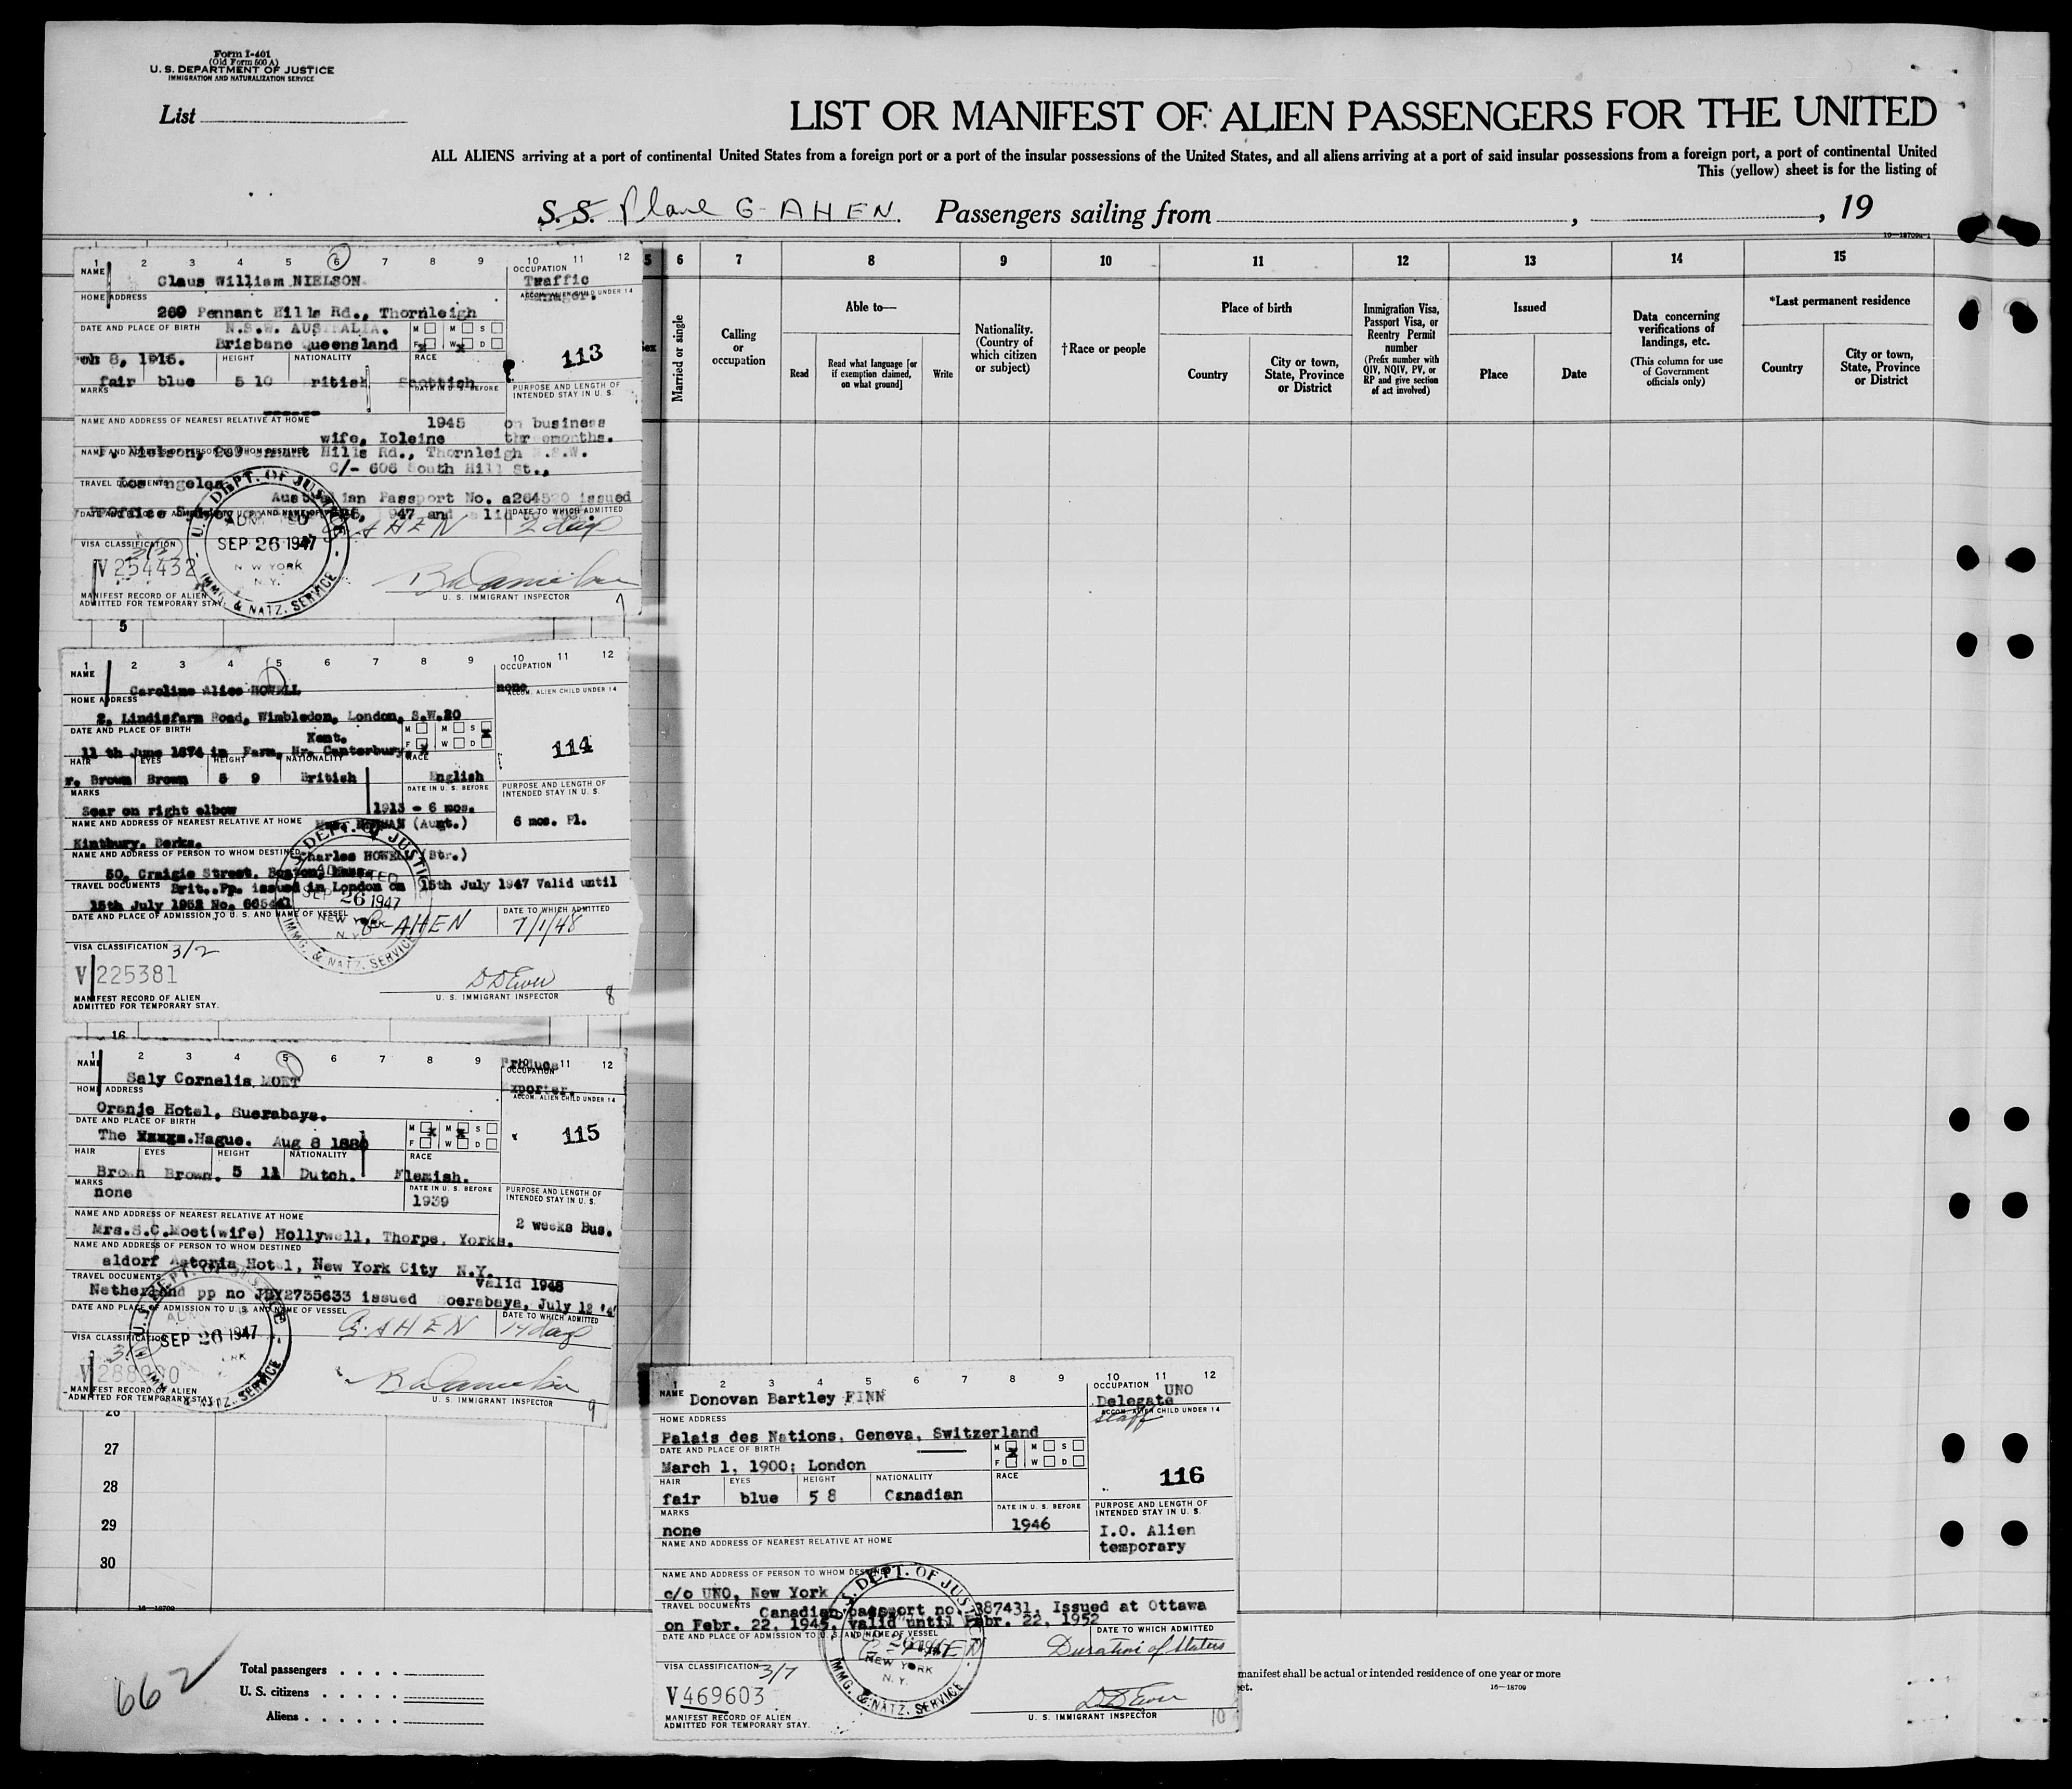 Form I-401
(Old Form 500 A)
U. S. DEPARTMENT OF JUSTICE
IMMIGRATION AND NATURALIZATION SERVICE
List
LIST OR MANIFEST OF ALIEN PASSENGERS FOR THE UNITED
ALL ALIENS arriving at a port of continental United States from a foreign port or a port of the insular possessions of the United States, and all aliens arriving at a port of said insular possessions from a foreign port, a port of continental United
This (yellow) sheet is for the listing of
S. S. Plane G-AHEN. Passengers sailing from , , 19
6 7 8 9 10 11 12 13 14 15
Married or single
Calling or occupation
Able to—
Read
Read what language [or if exemption claimed, on what ground]
Write
Nationality. (Country of which citizen or subject)
†Race or people
Place of birth
Country
City or town, State, Province or District
Immigration Visa, Passport Visa, or Reentry Permit number
(Prefix number with QIV, NQIV, PV, or RP and give section of act involved)
Issued
Place
Date
Data concerning verifications of landings, etc.
(This column for use of Government officials only)
*Last permanent residence
Country
City or town, State, Province or District
1 2 3 4 5 6 7 8 9 10 11 12
NAME
Claus William NIELSON
OCCUPATION
Traffic
HOME ADDRESS
269 Pennant Hills Rd., Thornleigh
DATE AND PLACE OF BIRTH
N.S.W. AUSTRALIA.
Brisbane Queensland
M M S
F W D
113
8, 1915.
HEIGHT NATIONALITY RACE
fair blue 5 10 ritish Scottish
MARKS
DATE IN U. S. BEFORE
PURPOSE AND LENGTH OF INTENDED STAY IN U. S.
NAME AND ADDRESS OF NEAREST RELATIVE AT HOME
1945
on business
wife, Ioleine
thr emonths.
Nielson, Hills Rd., Thornleigh N.S.W.
C/- 606 South Hill St.,
TRAVEL DOCUMENTS
Los ngeles
Australian Passport No. a264520 issued
947 and
DATE TO WHICH ADMITTED
AHEN
U.S. DEPT. OF JUSTICE
SEP 26 1947
NEW YORK
N.Y.
IMMG. & NATZ. SERVICE
VISA CLASSIFICATION
3/2
V 254432
MANIFEST RECORD OF ALIEN
ADMITTED FOR TEMPORARY STAY.
U. S. IMMIGRANT INSPECTOR
7
5
1 2 3 4 5 6 7 8 9 10 11 12
NAME
Caroline Alice HOWELL
OCCUPATION
none
ACCOM. ALIEN CHILD UNDER 14
HOME ADDRESS
2, Lindisfarm Road, Wimbledon, London, S.W.20
DATE AND PLACE OF BIRTH
Kent.
M M S
F W D
11 th June 1874 in Farm, Nr. Canterbury,
114
HAIR EYES HEIGHT NATIONALITY RACE
r. Brown Brown 5 9 British English
MARKS
DATE IN U. S. BEFORE
PURPOSE AND LENGTH OF INTENDED STAY IN U. S.
Scar on right elbow
1913 - 6 mos.
NAME AND ADDRESS OF NEAREST RELATIVE AT HOME
(Aunt.)
6 mos. Pl.
Kintbury. Berks.
NAME AND ADDRESS OF PERSON TO WHOM DESTINED
Charles HOWELL (Btr.)
50, Craigie Street, Boston, Mass.
TRAVEL DOCUMENTS
Brit. Pp. issued in London on 15th July 1947 Valid until
15th July 1952 No. 665441
DATE AND PLACE OF ADMISSION TO U. S. AND NAME OF VESSEL
DATE TO WHICH ADMITTED
G-AHEN
7/1/48
DEPT. OF JUSTICE
SEP 26 1947
NEW YORK
N.Y.
IMMG. & NATZ. SERVICE
VISA CLASSIFICATION
3/2
V 225381
MANIFEST RECORD OF ALIEN
ADMITTED FOR TEMPORARY STAY.
U. S. IMMIGRANT INSPECTOR
8
16
1 2 3 4 5 6 7 8 9 10 11 12
NAME
Saly Cornelis MOET
Produce
OCCUPATION
Exporter.
ACCOM. ALIEN CHILD UNDER 14
HOME ADDRESS
Oranje Hotel, Suerabaya.
DATE AND PLACE OF BIRTH
The Hague. Aug 8 1886
M M S
F W D
115
HAIR EYES HEIGHT NATIONALITY RACE
Brown Brown. 5 11 Dutch. Flemish.
MARKS
none
DATE IN U. S. BEFORE
1939
PURPOSE AND LENGTH OF INTENDED STAY IN U. S.
NAME AND ADDRESS OF NEAREST RELATIVE AT HOME
2 weeks Bus.
Mrs.S.C.Moet(wife) Hollywell, Thorpe, Yorks.
NAME AND ADDRESS OF PERSON TO WHOM DESTINED
aldorf Astoria Hotel, New York City N.Y.
TRAVEL DOCUMENTS
valid 1948
Netherland pp no issued oerabaya, July 12
DATE AND PLACE OF ADMISSION TO U. S. AND NAME OF VESSEL
DATE TO WHICH ADMITTED
G.AHEN
14 days
U.S. DEPT. OF JUSTICE
SEP 26 1947
IMMG. & NATZ. SERVICE
VISA CLASSIFICATION
MANIFEST RECORD OF ALIEN
ADMITTED FOR TEMPORARY STAY
U. S. IMMIGRANT INSPECTOR
9
26
27
28
29
30
16—18709
1 2 3 4 5 6 7 8 9 10 11 12
NAME
Donovan Bartley FINN
OCCUPATION
UNO
Delegate
staff
ACCOM. ALIEN CHILD UNDER 14
HOME ADDRESS
Palais des Nations, Geneva, Switzerland
DATE AND PLACE OF BIRTH
M M S
F W D
March 1, 1900; London
116
HAIR EYES HEIGHT NATIONALITY RACE
fair blue 5 8 Canadian
MARKS
none
DATE IN U. S. BEFORE
1946
PURPOSE AND LENGTH OF INTENDED STAY IN U. S.
I.O. Alien
temporary
NAME AND ADDRESS OF NEAREST RELATIVE AT HOME
NAME AND ADDRESS OF PERSON TO WHOM DESTINED
c/o UNO, New York
TRAVEL DOCUMENTS
Canadian passport no. 387431. Issued at Ottawa
on Febr. 22, 1945, valid until Febr. 22, 1952
DATE AND PLACE OF ADMISSION TO U. S. AND NAME OF VESSEL
DATE TO WHICH ADMITTED
G-AHEN
Duration of Status
U.S. DEPT. OF JUSTICE
NEW YORK
N.Y.
IMMG. & NATZ. SERVICE
VISA CLASSIFICATION
3/7
V 469603
MANIFEST RECORD OF ALIEN
ADMITTED FOR TEMPORARY STAY.
U. S. IMMIGRANT INSPECTOR
10
662
Total passengers
U. S. citizens
Aliens
manifest shall be actual or intended residence of one year or more
16—18709